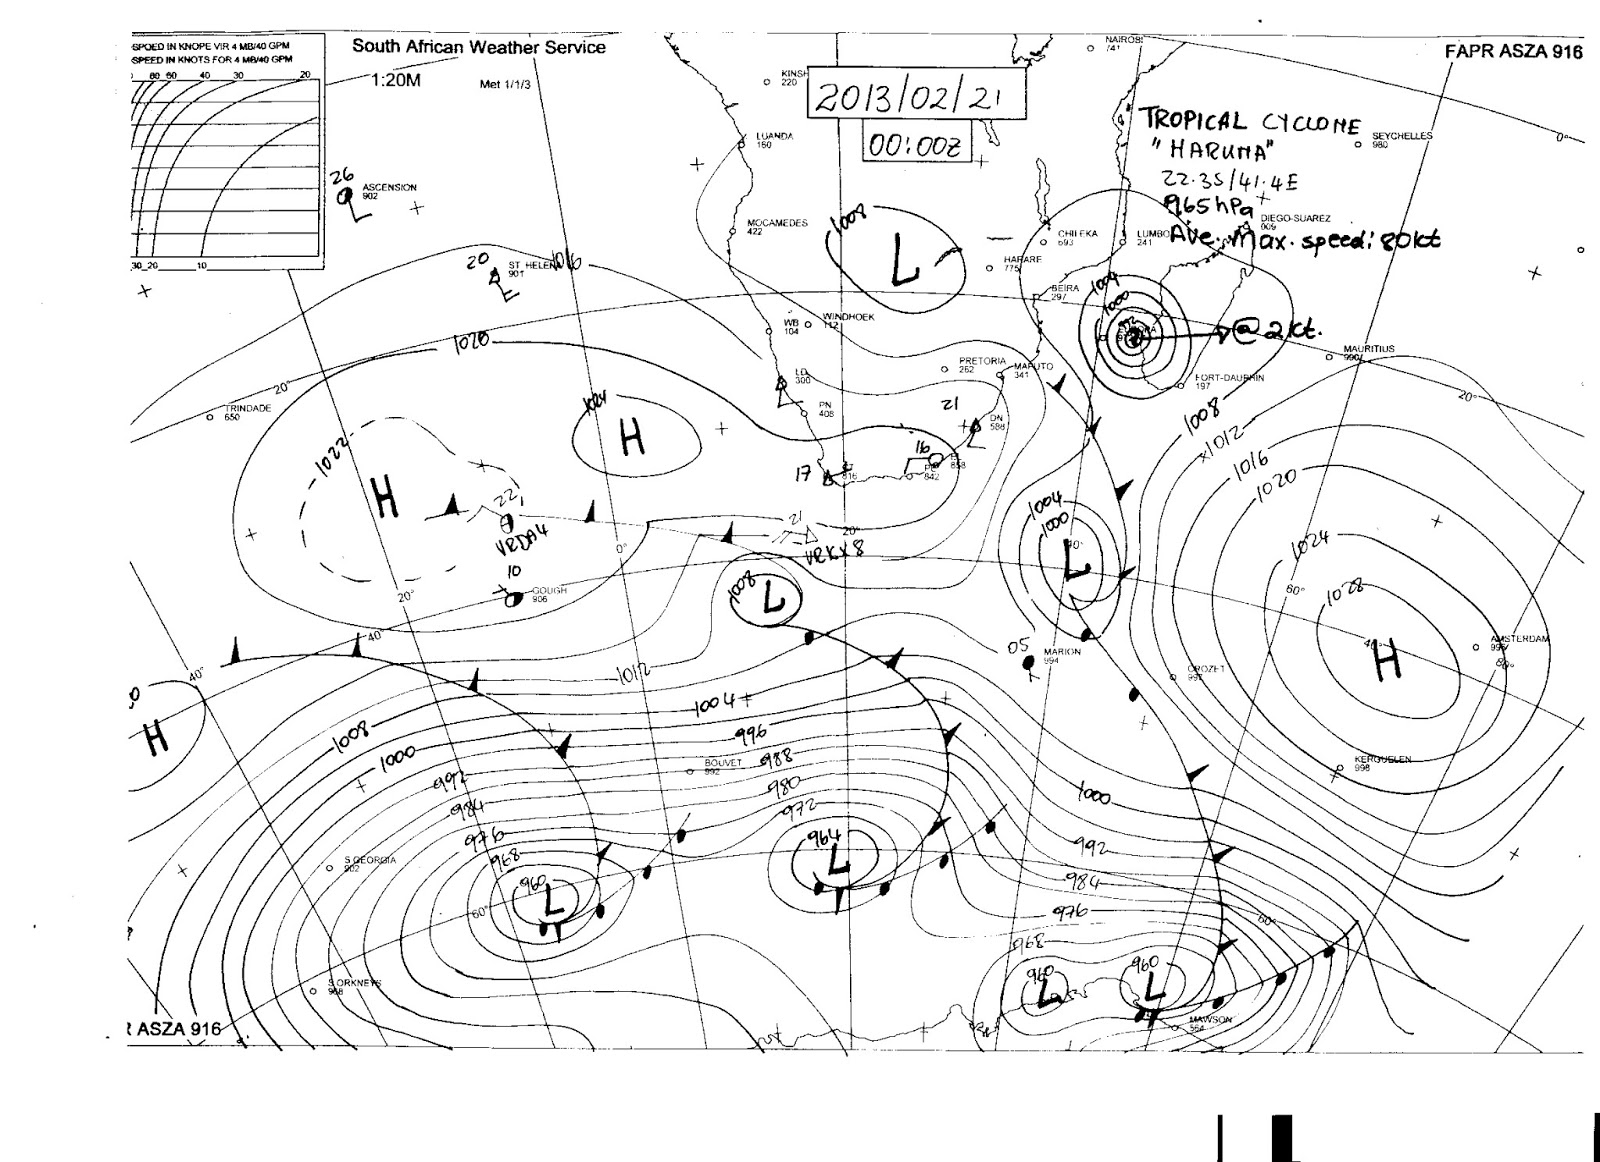 SPOED IN KNOPE VIR 4 MB/40 GPM
SPEED IN KNOTS FOR 4 MB/40 GPM
80 60 40 30 20
30 20 10
South African Weather Service
1:20M
Met 1/1/3
FAPR ASZA 916
2013/02/21
00:00Z
TROPICAL CYCLONE
"HARUNA"
22.3S/41.4E
965hPa
Ave. Max. speed: 80kt
@ 2kt.
NAIROBI
741
KINSH
220
LUANDA
160
SEYCHELLES
980
0°
26
ASCENSION
902
MOCAMEDES
422
1008
L
CHILEKA
693
LUMBO
241
DIEGO-SUAREZ
009
HARARE
775
20
ST HELEN
901
1016
BEIRA
297
1004
1000
WINDHOEK
112
WB
104
1020
MAURITIUS
990
PRETORIA
262
MAPUTO
341
FORT-DAUPHIN
197
20°
20°
LD
300
PN
408
TRINDADE
650
1024
H
21
DN
588
1008
1012
1016
1020
1024
1028
H
1022
H
17
816
16
858
842
22
VRDA4
21
VRKX8
20°
0°
1004
1000
40°
L
10
GOUGH
906
20°
40°
1008
L
60°
05
MARION
994
CROZET
997
AMSTERDAM
996
40°
80°
40°
H
1012
1004
996
988
980
972
964
L
BOUVET
992
1008
1000
992
984
976
968
960
L
60°
KERGUELEN
998
1000
992
984
976
968
960
L
960
L
60°
S GEORGIA
902
S ORKNEYS
968
MAWSON
564
R ASZA 916